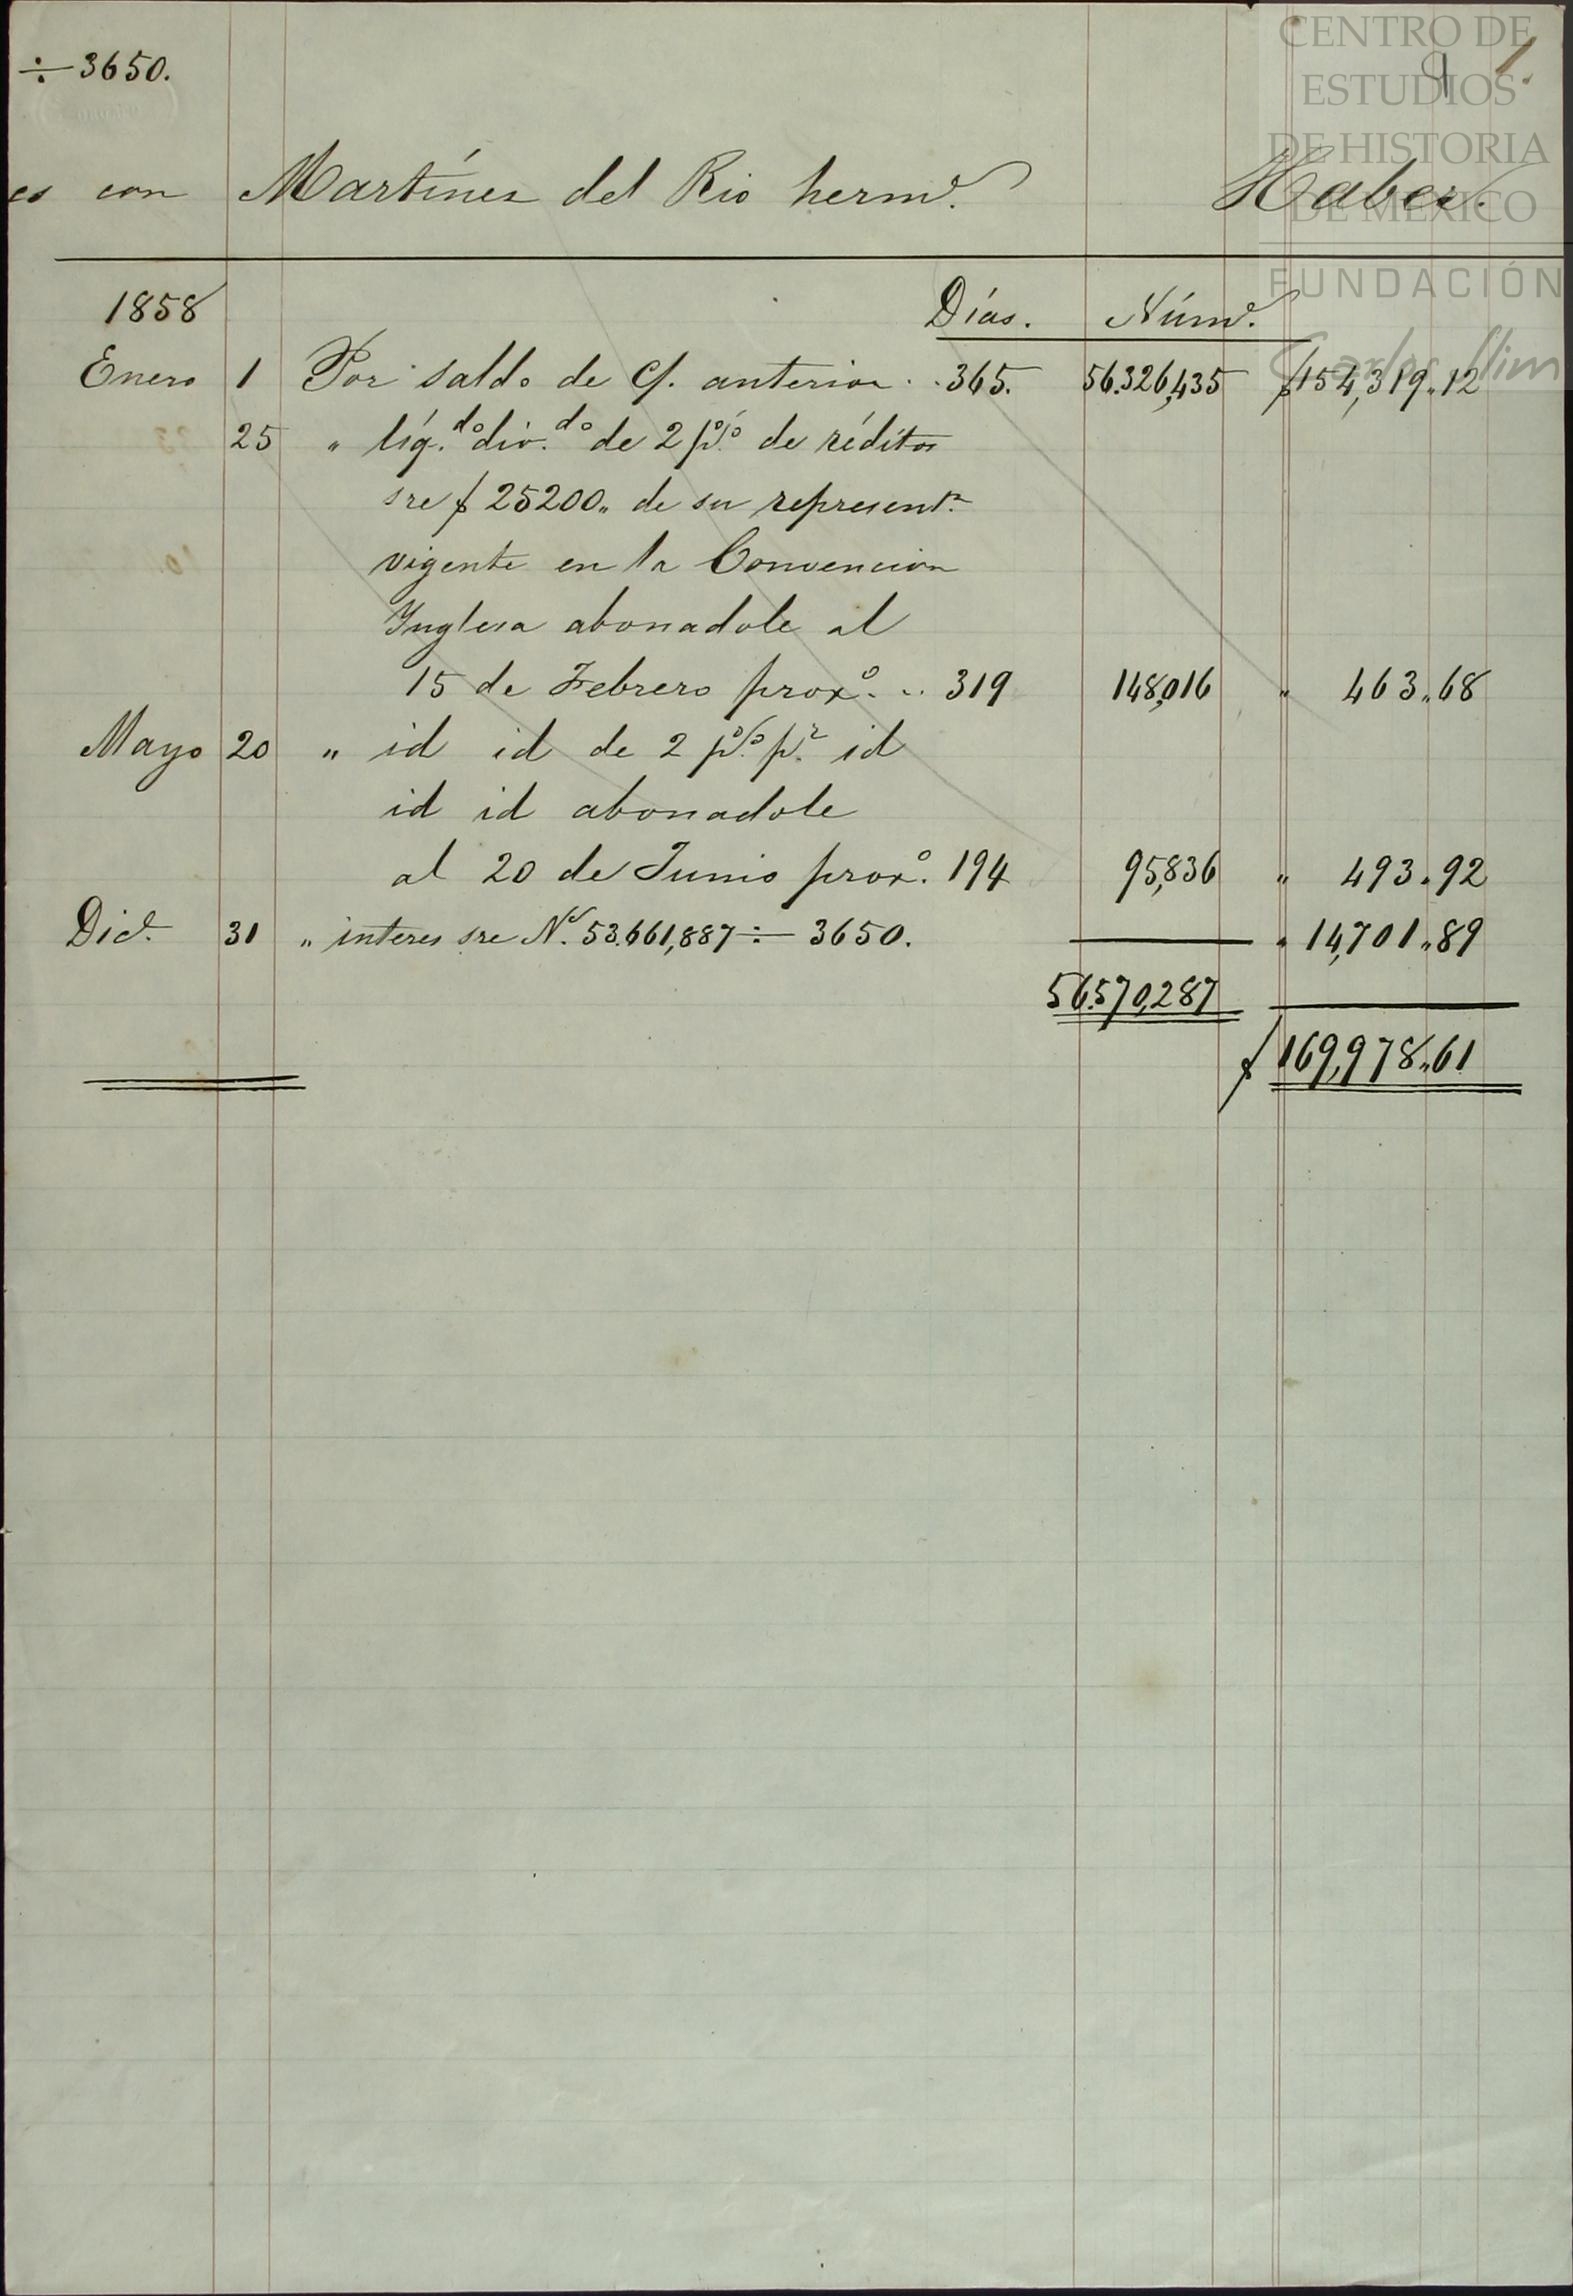 ÷ 3650.
9 1.
CENTRO DE
ESTUDIOS
DE HISTORIA
DE MÉXICO
FUNDACIÓN
Carlos Slim
es con Martínez del Rio herms. Haber.
1858 Días. Núms.
Enero 1 Por saldo de c/. anterior . . 365. 56.326,435 $154,319„12
25 „ líq.do div.do de 2 p%. de réditos
sre $ 25200„ de su represent.n
vigente en la Convencion
Inglesa abonadole al
15 de Febrero proxo. .. 319 148,016 „ 463„68
Mayo 20 „ id id de 2 p%. p.r id
id id abonadole
al 20 de Junio proxo. 194 95,836 „ 493„92
Dice. 31 „ interes sre Ns. 53.661,887 ÷ 3650. „ 14,701„89
56.570,287
$ 169,978„61